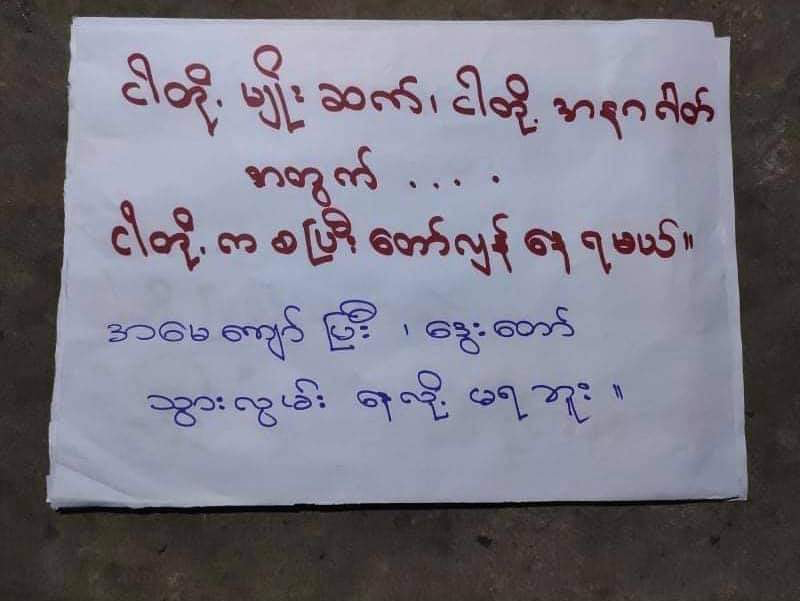 ငါတို့ မျိုးဆက်၊ ငါတို့ အနာဂါတ်
အတွက် ....
ငါတို့ က စပြီး တော်လှန် နေ ရမယ်။
အမေကျော် ပြီး ၊ ဒွေးတော်
သွားလွမ်း နေလို့ မရ ဘူး ။